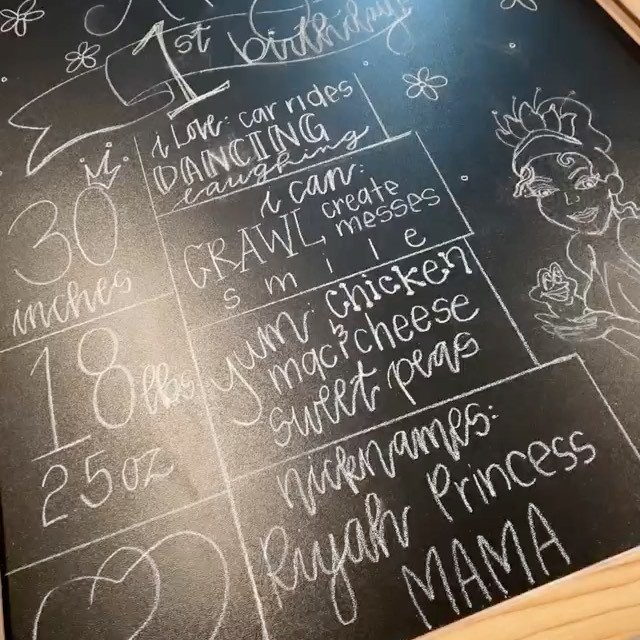 1st birthday
i love: car rides
DANCING
laughing
30
inches
i can:
CRAWL create messes
smile
18 lbs
25 oz
yum: chicken
mac & cheese
sweet peas
nicknames:
Riyah Princess
MAMA